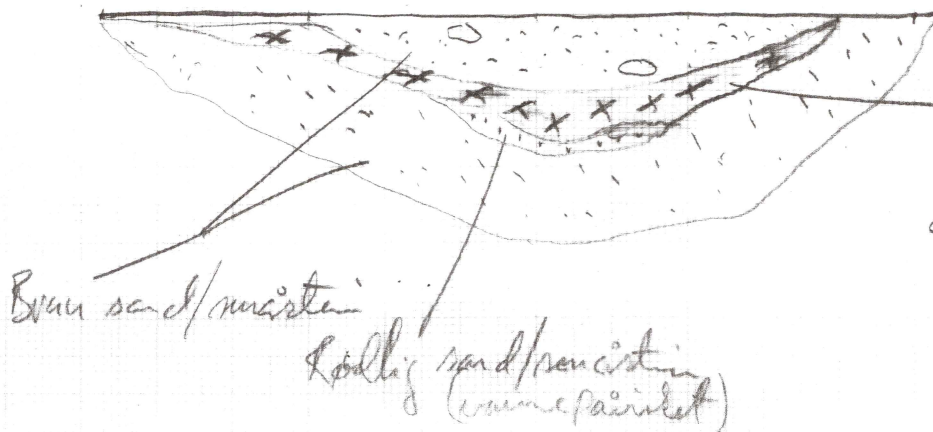 Brun sand/småstein
Rødlig sand/småstein
(varmepåvirket)